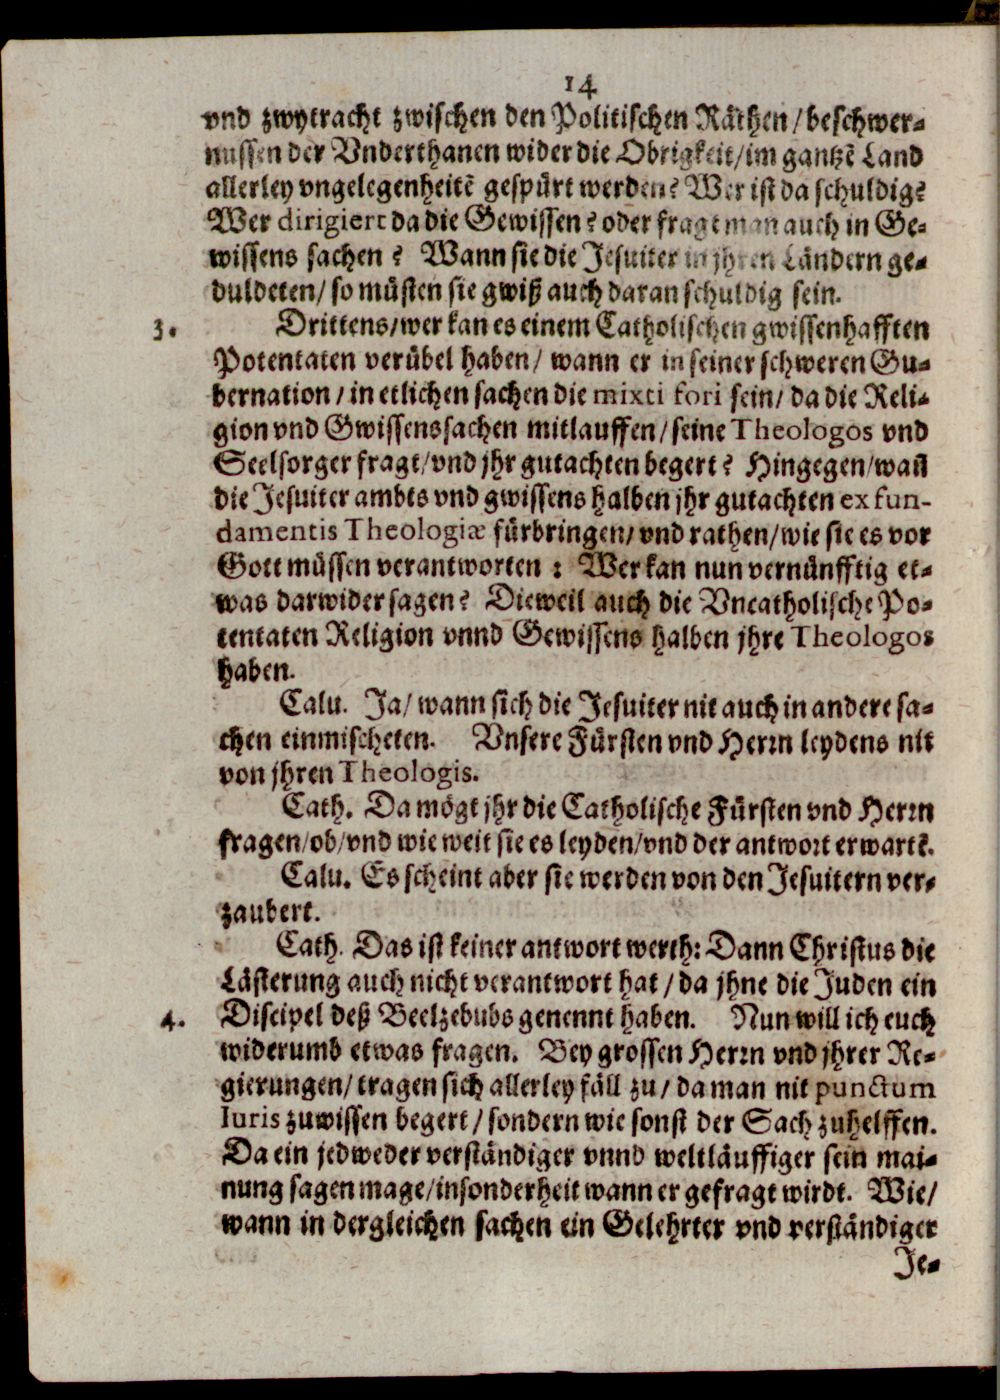 14
vnd zwytracht zwischen den Politischen Räthen / beschwer-
nussen der Vnderthanen wider die Obrigkeit/im gantzē Land
allerley vngelegenheitē gespürt werden? Wer ist da schuldig?
Wer dirigiert da die Gewissen? oder fragt man auch in Ge-
wissens sachen? Wann sie die Jesuiter in jhren Ländern ge-
duldeten/ so müsten sie gwiß auch daran schuldig sein.
3. Drittens/wer kan es einem Catholischen gwissenhafften
Potentaten verübel haben/ wann er in seiner schweren Gu-
bernation / in etlichen sachen die mixti fori sein/ da die Reli-
gion vnd Gwissenssachen mitlauffen/ seine Theologos vnd
Seelsorger fragt/vnd jhr gutachten begert? Hingegen/wañ
die Jesuiter ambts vnd gwissens halben jhr gutachten ex fun-
damentis Theologiæ fürbringen/ vnd rathen/wie sie es vor
Gott müssen verantworten : Wer kan nun vernünfftig et-
was darwider sagen? Dieweil auch die Vncatholische Po-
tentaten Religion vnnd Gewissens halben jhre Theologos
haben.
Calu. Ja/ wann sich die Jesuiter nit auch in andere sa-
chen einmischeten. Vnsere Fürsten vnd Herrn leydens nit
von jhren Theologis.
Cath. Da mögt jhr die Catholische Fürsten vnd Herrn
fragen/ob/vnd wie weit sie es leyden/vnd der antwort erwartē.
Calu. Es scheint aber sie werden von den Jesuitern ver-
zaubert.
Cath. Das ist keiner antwort werth: Dann Christus die
Lästerung auch nicht verantwort hat / da jhne die Juden ein
4. Discipel deß Beelzebubs genennt haben. Nun will ich euch
widerumb etwas fragen. Bey grossen Herrn vnd jhrer Re-
gierungen/ tragen sich allerley fäll zu/ da man nit punctum
Iuris zuwissen begert / sondern wie sonst der Sach zuhelffen.
Da ein jedweder verständiger vnnd weltläuffiger sein mai-
nung sagen mage/insonderheit wann er gefragt wirdt. Wie/
wann in dergleichen sachen ein Gelehrter vnd verständiger
Je-